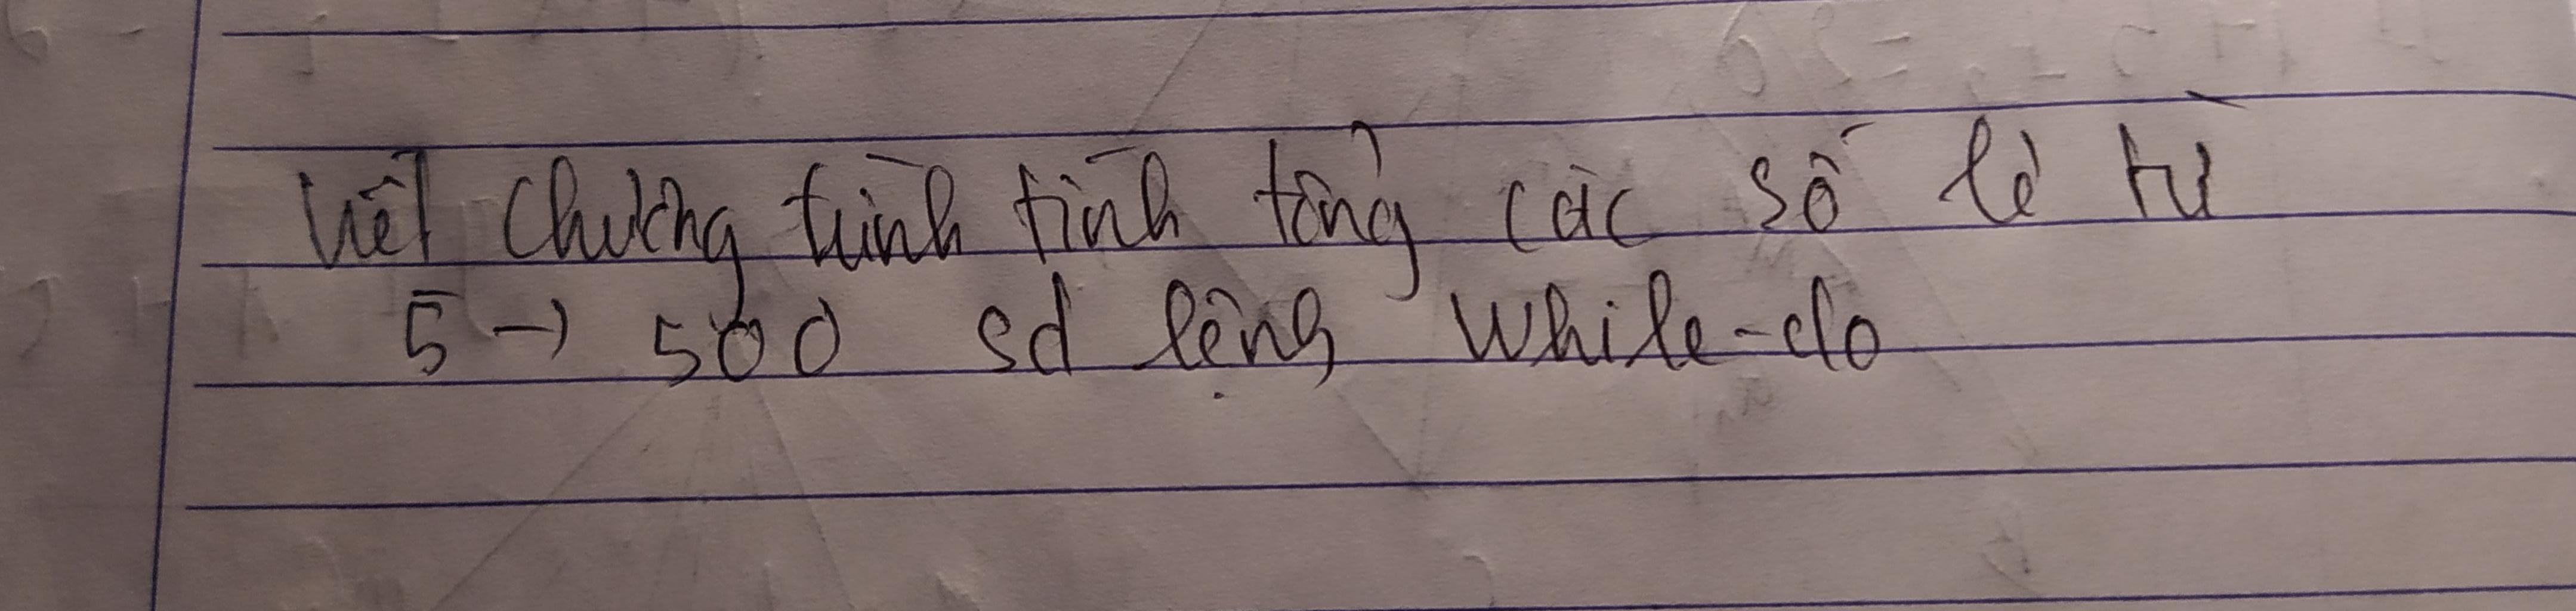 Viết chương trình tính tổng các số lẻ từ
5 → 500 sd lệng while-do